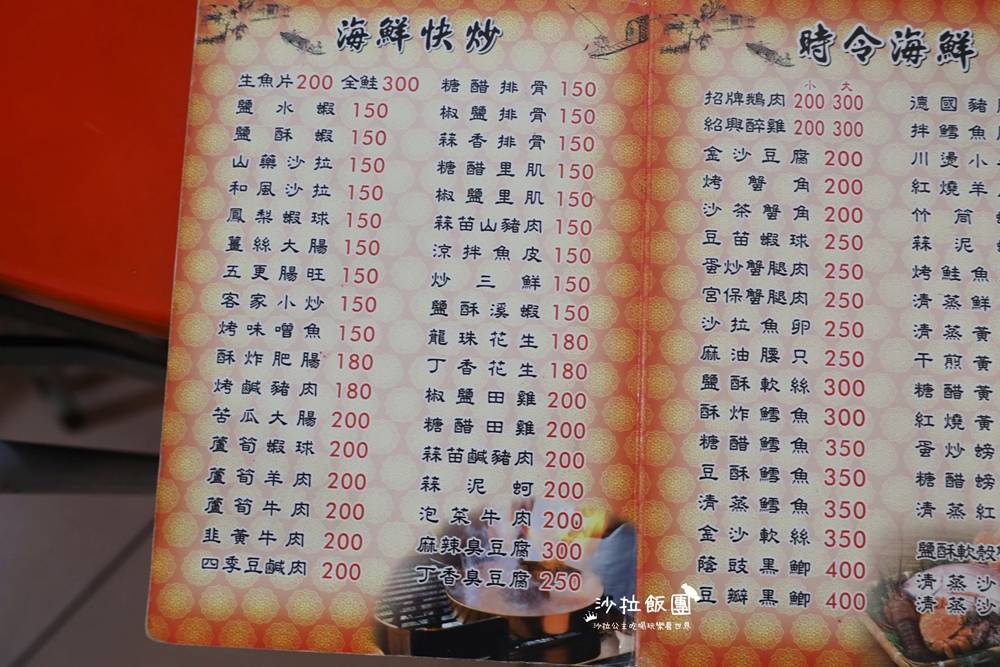 海鮮快炒
生魚片200 全鮭300
鹽水蝦 150
鹽酥蝦 150
山藥沙拉 150
和風沙拉 150
鳳梨蝦球 150
薑絲大腸 150
五更腸旺 150
客家小炒 150
烤味噌魚 150
酥炸肥腸 180
烤鹹豬肉 180
苦瓜大腸 200
蘆筍蝦球 200
蘆筍羊肉 200
蘆筍牛肉 200
韭黃牛肉 200
四季豆鹹肉 200
糖醋排骨 150
椒鹽排骨 150
蒜香排骨 150
糖醋里肌 150
椒鹽里肌 150
蒜苗山豬肉 150
涼拌魚皮 150
炒三鮮 150
鹽酥溪蝦 150
龍珠花生 180
丁香花生 180
椒鹽田雞 200
糖醋田雞 200
蒜苗鹹豬肉 200
蒜泥蚵 200
泡菜牛肉 200
麻辣臭豆腐 300
丁香臭豆腐 250
時令海鮮
小 大
招牌鵝肉 200 300
紹興醉雞 200 300
金沙豆腐 200
烤蟹角 200
沙茶蟹角 200
豆苗蝦球 250
蛋炒蟹腿肉 250
宮保蟹腿肉 250
沙拉魚卵 250
麻油腰只 250
鹽酥軟絲 300
酥炸鱈魚 300
糖醋鱈魚 350
豆酥鱈魚 350
清蒸鱈魚 350
金沙軟絲 350
蔭豉黑鯽 400
豆瓣黑鯽 400
德國豬
拌鱈魚
川燙小
紅燒羊
竹筒
蒜泥
烤鮭魚
清蒸鮮
清蒸黃
干煎黃
糖醋黃
紅燒黃
蛋炒螃
糖醋螃
清蒸紅
鹽酥軟殼
清蒸沙
清蒸沙
沙拉飯團
沙拉公主吃喝玩樂看世界